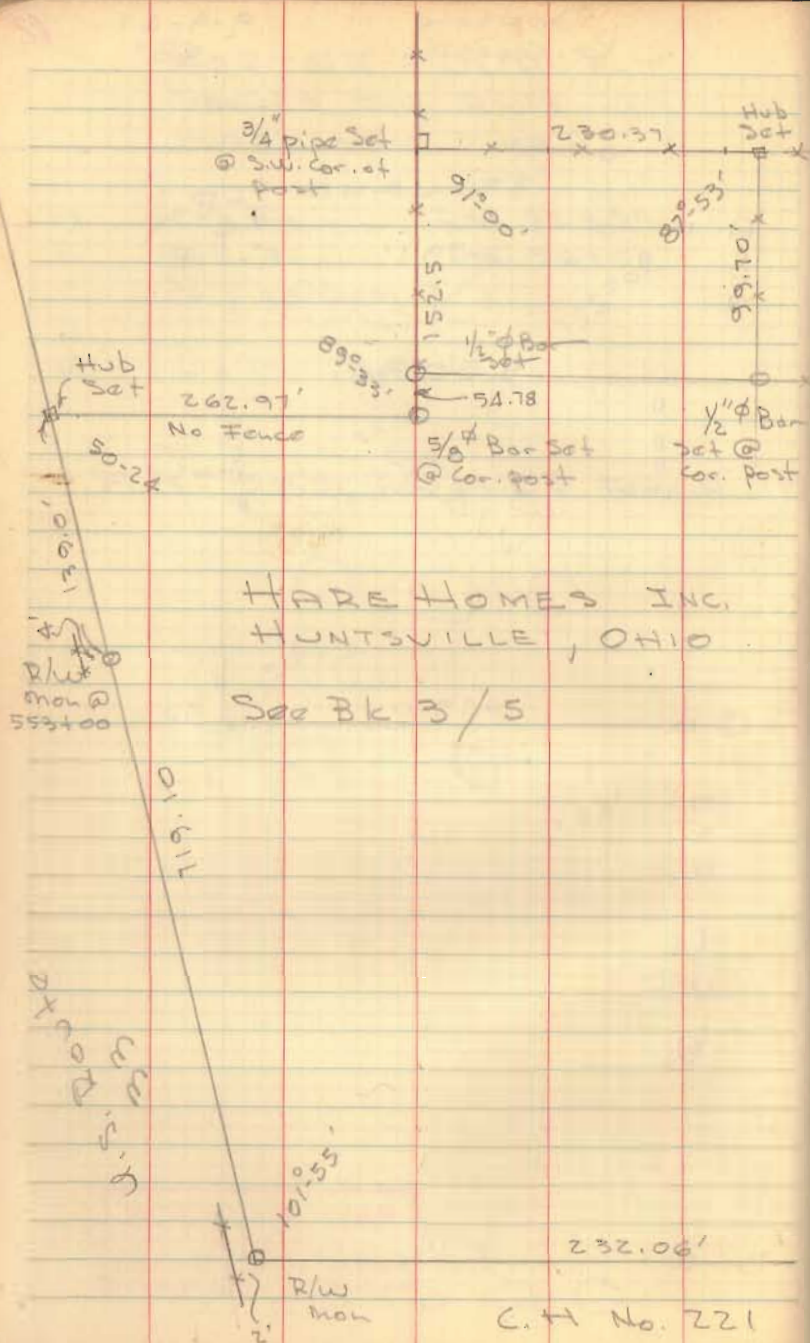 3/4" pipe Set
@ S.W. Cor. of
post
230.37
Hub
Set
91°-00'
87°-53'
99.70'
152.5
1/2" ϕ Bar
Set
89°-33'
54.78
Hub
Set
262.97'
No Fence
5/8" ϕ Bar Set
@ Cor. post
1/2" ϕ Bar
Set @
Cor. post
50-24
139.0'
HARE HOMES INC.
HUNTSVILLE, OHIO
R/W
Mon @
553+00
See Bk 3/5
719.10
U.S. 33
101°-55'
232.06'
R/W
Mon
2'
C.H No. 221